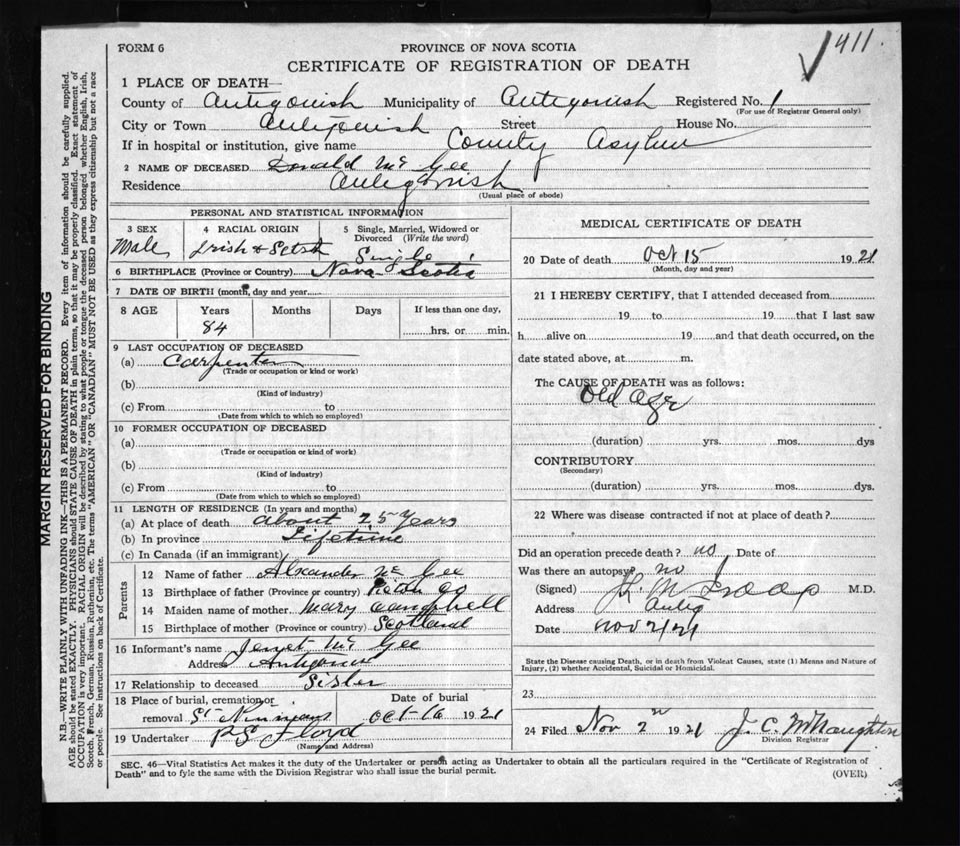 FORM 6
PROVINCE OF NOVA SCOTIA
411
CERTIFICATE OF REGISTRATION OF DEATH
1 PLACE OF DEATH—
County of Antigonish Municipality of Antigonish Registered No. 1
(For use of Registrar General only)
City or Town Antigonish Street House No.
If in hospital or institution, give name County Asylum
2 NAME OF DECEASED Donald Mc Gee
Residence Antigonish
(Usual place of abode)
PERSONAL AND STATISTICAL INFORMATION
3 SEX Male
4 RACIAL ORIGIN Irish + Scotch
5 Single, Married, Widowed or Divorced (Write the word) Single
6 BIRTHPLACE (Province or Country) Nova Scotia
7 DATE OF BIRTH (month, day and year
8 AGE Years Months Days If less than one day,
84 hrs. or min.
9 LAST OCCUPATION OF DECEASED
(a) Carpenter
(Trade or occupation or kind or work)
(b)
(Kind of industry)
(c) From to
(Date from which to which so employed)
10 FORMER OCCUPATION OF DECEASED
(a)
(Trade or occupation or kind of work)
(b)
(Kind of industry)
(c) From to
(Date from which to which so employed)
11 LENGTH OF RESIDENCE (In years and months)
(a) At place of death about 25 Years
(b) In province Lifetime
(c) In Canada (if an immigrant)
Parents
12 Name of father Alexander Mc Gee
13 Birthplace of father (Province or country)
14 Maiden name of mother Mary Campbell
15 Birthplace of mother (Province or country) Scotland
16 Informant's name Jennet Mc Gee
Address Antigonish
17 Relationship to deceased Sister
18 Place of burial, cremation or Date of burial
removal St Ninnians Oct 16 1921
19 Undertaker P S Floyd
(Name and Address)
MEDICAL CERTIFICATE OF DEATH
20 Date of death Oct 15 1921
(Month, day and year)
21 I HEREBY CERTIFY, that I attended deceased from
19 to 19 that I last saw
h alive on 19 and that death occurred, on the
date stated above, at m.
The CAUSE OF DEATH was as follows:
Old Age
(duration) yrs. mos. dys
CONTRIBUTORY
(Secondary)
(duration) yrs. mos. dys
22 Where was disease contracted if not at place of death?
Did an operation precede death? no Date of
Was there an autopsy no
(Signed) M.D.
Address Antig
Date Nov 2/21
State the Disease causing Death, or in death from Violent Causes, state (1) Means and Nature of
Injury, (2) whether Accidental, Suicidal or Homicidal.
23
24 Filed Nov 2nd 1921 J. C. McNaughton
Division Registrar
SEC. 46—Vital Statistics Act makes it the duty of the Undertaker or person acting as Undertaker to obtain all the particulars required in the "Certificate of Registration of
Death" and to fyle the same with the Division Registrar who shall issue the burial permit.
(OVER)
MARGIN RESERVED FOR BINDING
N.B.—WRITE PLAINLY WITH UNFADING INK—THIS IS A PERMANENT RECORD. Every item of information should be carefully supplied.
AGE should be stated EXACTLY. PHYSICIANS should STATE CAUSE OF DEATH in plain terms, so that it may be properly classified. Exact statement of
OCCUPATION is very important. RACIAL ORIGIN will be described by stating to what people or tongue the deceased person belonged whether English, Irish,
Scotch, French, German, Russian, Ruthenian, etc. The terms "AMERICAN" OR "CANADIAN" MUST NOT BE USED as they express citizenship but not a race
or people. See instructions on back of Certificate.